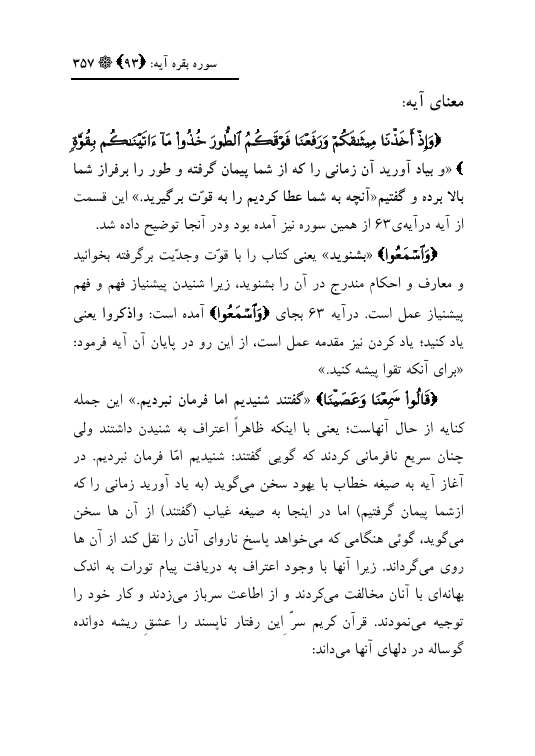 سوره بقره آیه: ﴿۹۳﴾ ۞ ۳۵۷
معنای آیه:
﴿وَإِذۡ أَخَذۡنَا مِيثَٰقَكُمۡ وَرَفَعۡنَا فَوۡقَكُمُ ٱلطُّورَ خُذُواْ مَآ ءَاتَيۡنَٰكُم بِقُوَّةٖ
﴾ «و بیاد آورید آن زمانی را که از شما پیمان گرفته و طور را برفراز شما
بالا برده و گفتیم«آنچه به شما عطا کردیم را به قوّت برگیرید.» این قسمت
از آیه درآیه‌ی۶۳ از همین سوره نیز آمده بود ودر آنجا توضیح داده شد.
﴿وَٱسۡمَعُواْ﴾ «بشنوید» یعنی کتاب را با قوّت وجدّیت برگرفته بخوانید
و معارف و احکام مندرج در آن را بشنوید، زیرا شنیدن پیشنیاز فهم و فهم
پیشنیاز عمل است. درآیه ۶۳ بجای ﴿وَٱسۡمَعُواْ﴾ آمده است: واذکروا یعنی
یاد کنید؛ یاد کردن نیز مقدمه عمل است، از این رو در پایان آن آیه فرمود:
«برای آنکه تقوا پیشه کنید.»
﴿قَالُواْ سَمِعۡنَا وَعَصَيۡنَا﴾ «گفتند شنیدیم اما فرمان نبردیم.» این جمله
کنایه از حال آنهاست؛ یعنی با اینکه ظاهراً اعتراف به شنیدن داشتند ولی
چنان سریع نافرمانی کردند که گویی گفتند: شنیدیم امّا فرمان نبردیم. در
آغاز آیه به صیغه خطاب با یهود سخن می‌گوید (به یاد آورید زمانی را که
ازشما پیمان گرفتیم) اما در اینجا به صیغه غیاب (گفتند) از آن ها سخن
می‌گوید، گوئی هنگامی که می‌خواهد پاسخ ناروای آنان را نقل کند از آن ها
روی می‌گرداند. زیرا آنها با وجود اعتراف به دریافت پیام تورات به اندک
بهانه‌ای با آنان مخالفت می‌کردند و از اطاعت سرباز می‌زدند و کار خود را
توجیه می‌نمودند. قرآن کریم سرّ ِاین رفتار ناپسند را عشقِ ریشه دوانده
گوساله در دلهای آنها می‌داند: